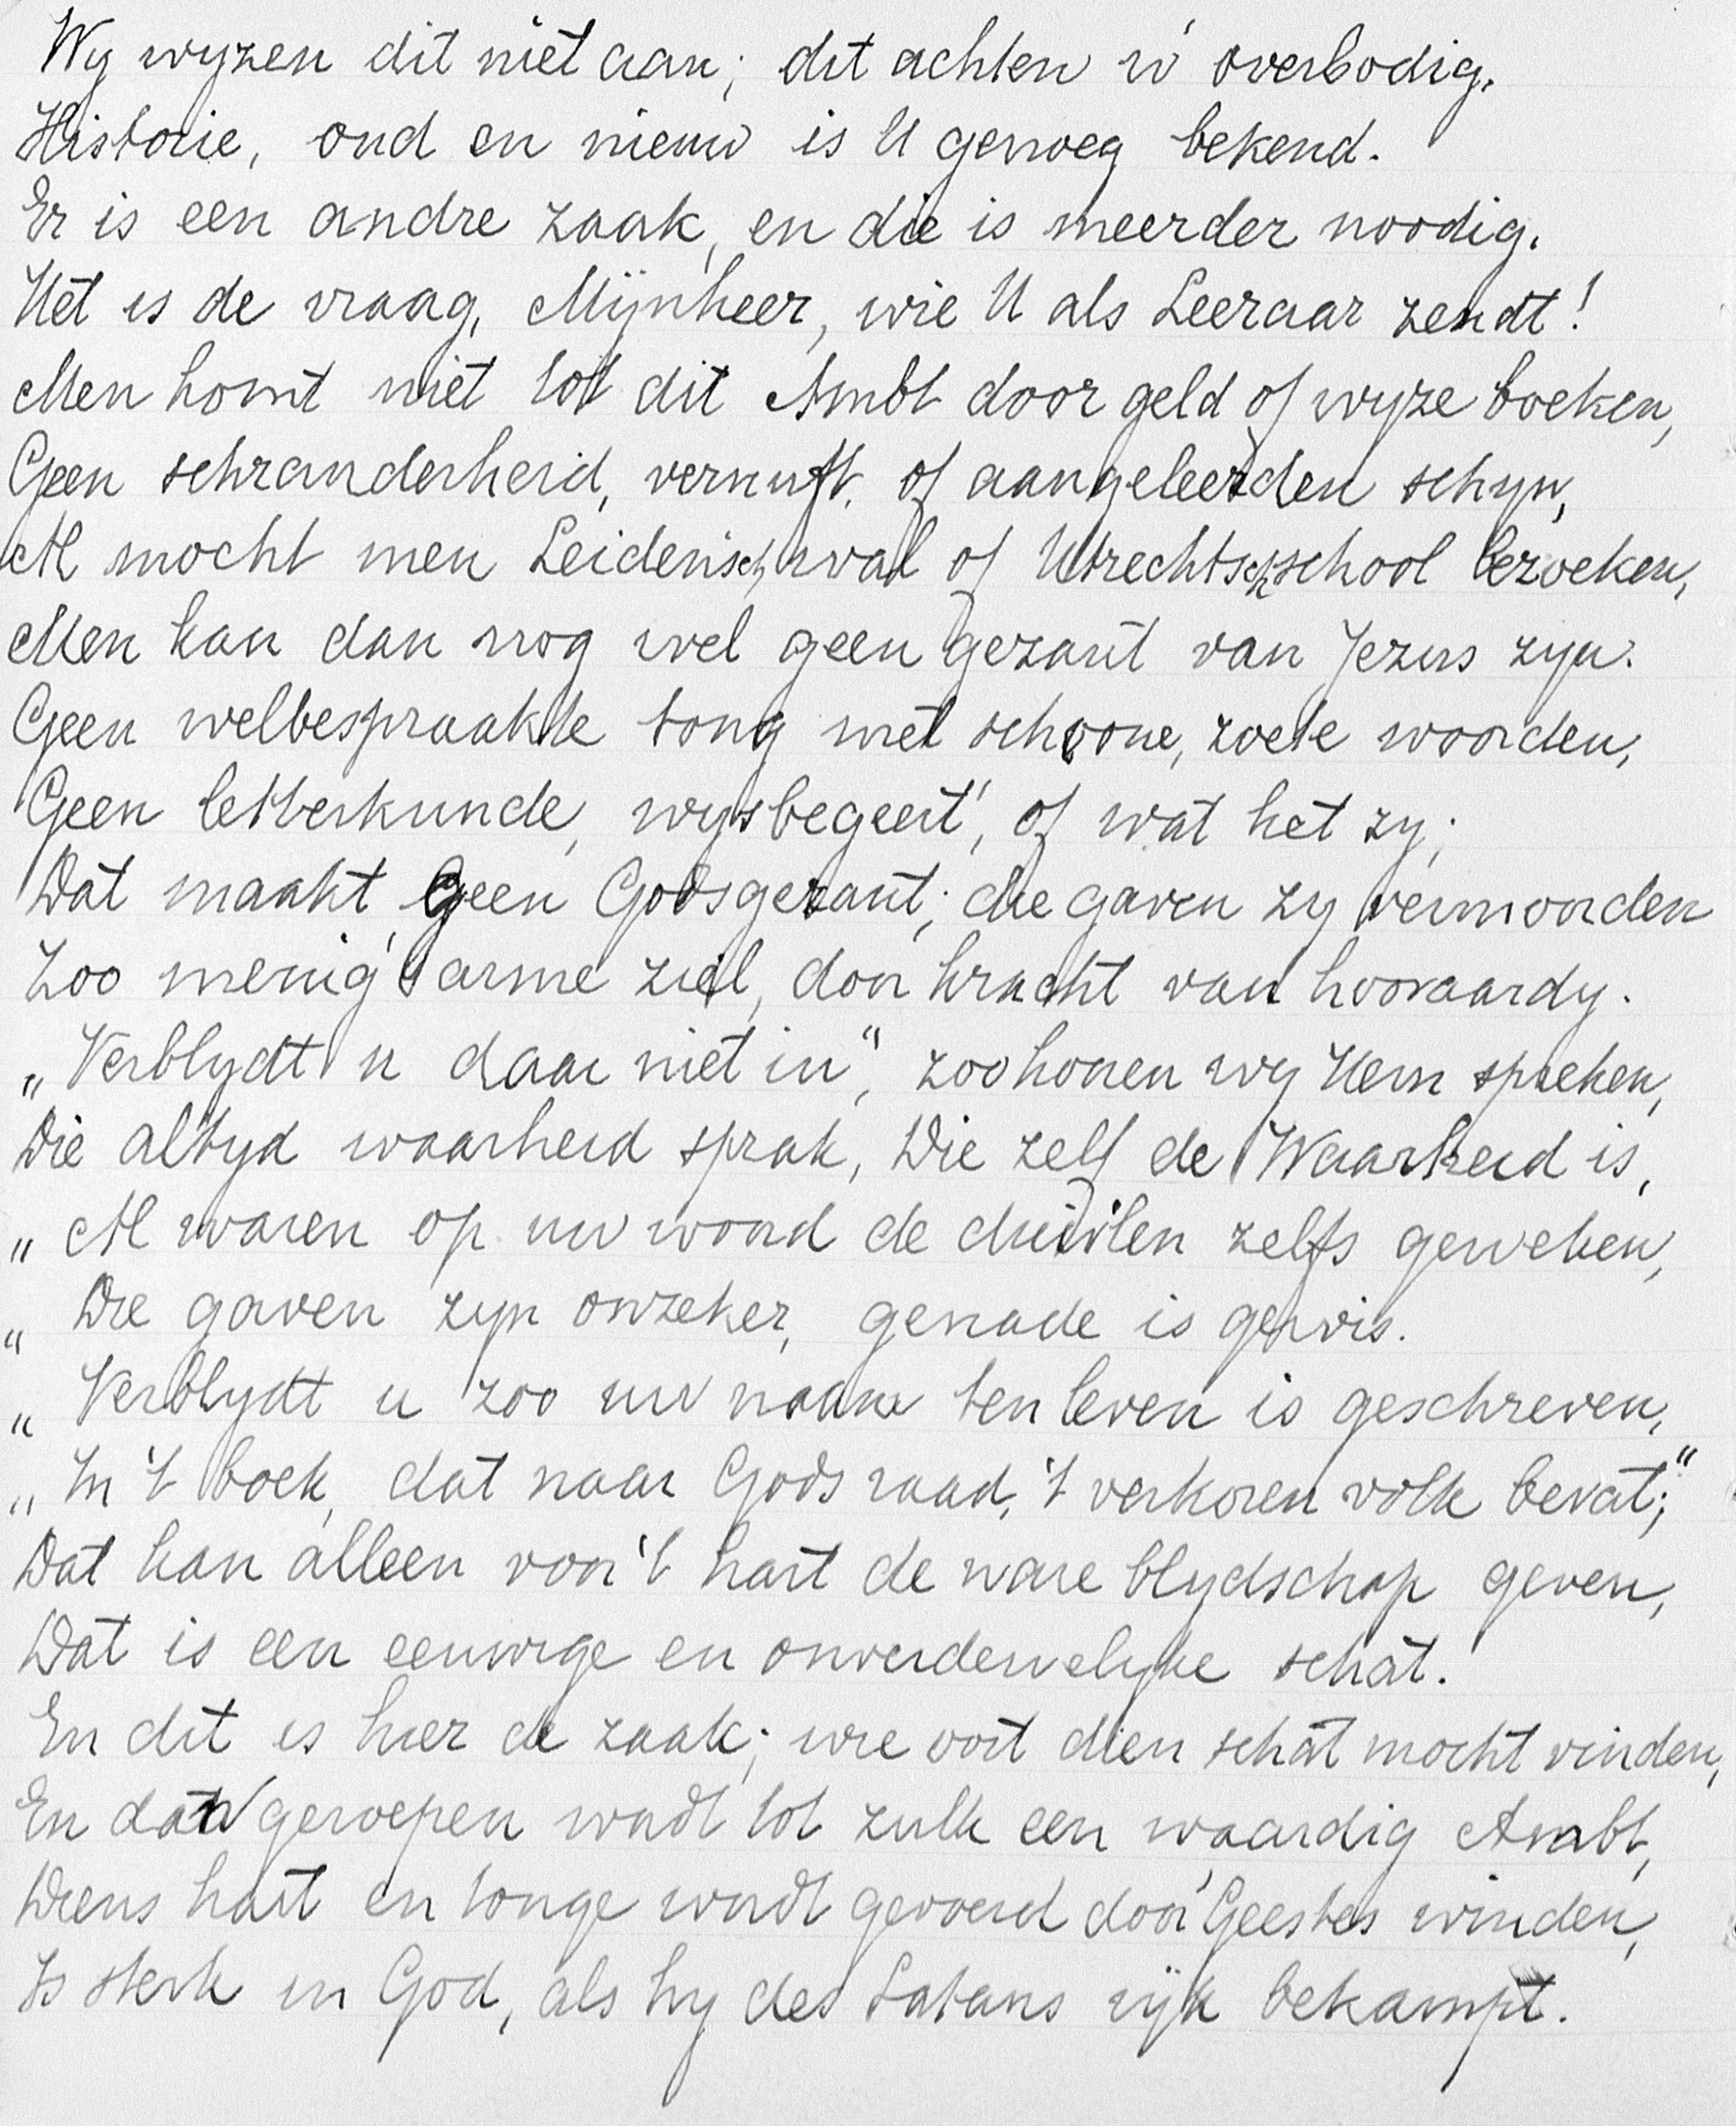 Wy wyzen dit niet aan; dit achten w' overbodig.
Historie, oud en nieuw is U genoeg bekend.
Er is een andre zaak, en die is meerder noodig.
Het is de vraag, Mijnheer, wie U als Leeraar zendt!
Men komt niet tot dit Ambt door geld of wyze boeken,
Geen schranderheid, vernuft, of aangeleerden schyn,
Al mocht men Leidensch wal of Utrechtsch school bezoeken,
Men kan dan nog wel geen gezant van Jezus zyn.
Geen welbespraakte tong met schoone, zoete woorden,
Geen letterkunde, wysbegeert', of wat het zy;
Dat maakt geen Godsgezant; die gaven zy vermoorden
Zoo menig arme ziel, door kracht van hoovaardy.
„Verblydt u daar niet in", zoo hooren wy Hem spreken,
Die altyd waarheid sprak, Die zelf de Waarheid is,
„Al waren op uw woord de duivlen zelfs geweken,
„Die gaven zyn onzeker, genade is gewis.
„Verblydt u zoo uw naam ten leven is geschreven,
„In 't boek, dat naar Gods raad, 't verkoren volk bevat;"
Dat kan alleen voor 't hart de ware blydschap geven,
Dat is een eeuwige en onverdervelyke schat.
En dit is hier de zaak; wie ooit dien schat mocht vinden,
En dan geroepen wordt tot zulk een waardig Ambt,
Wiens hart en tonge wordt gevoerd door Geestes winden,
Is sterk in God, als hy des Satans ryk bekampt.